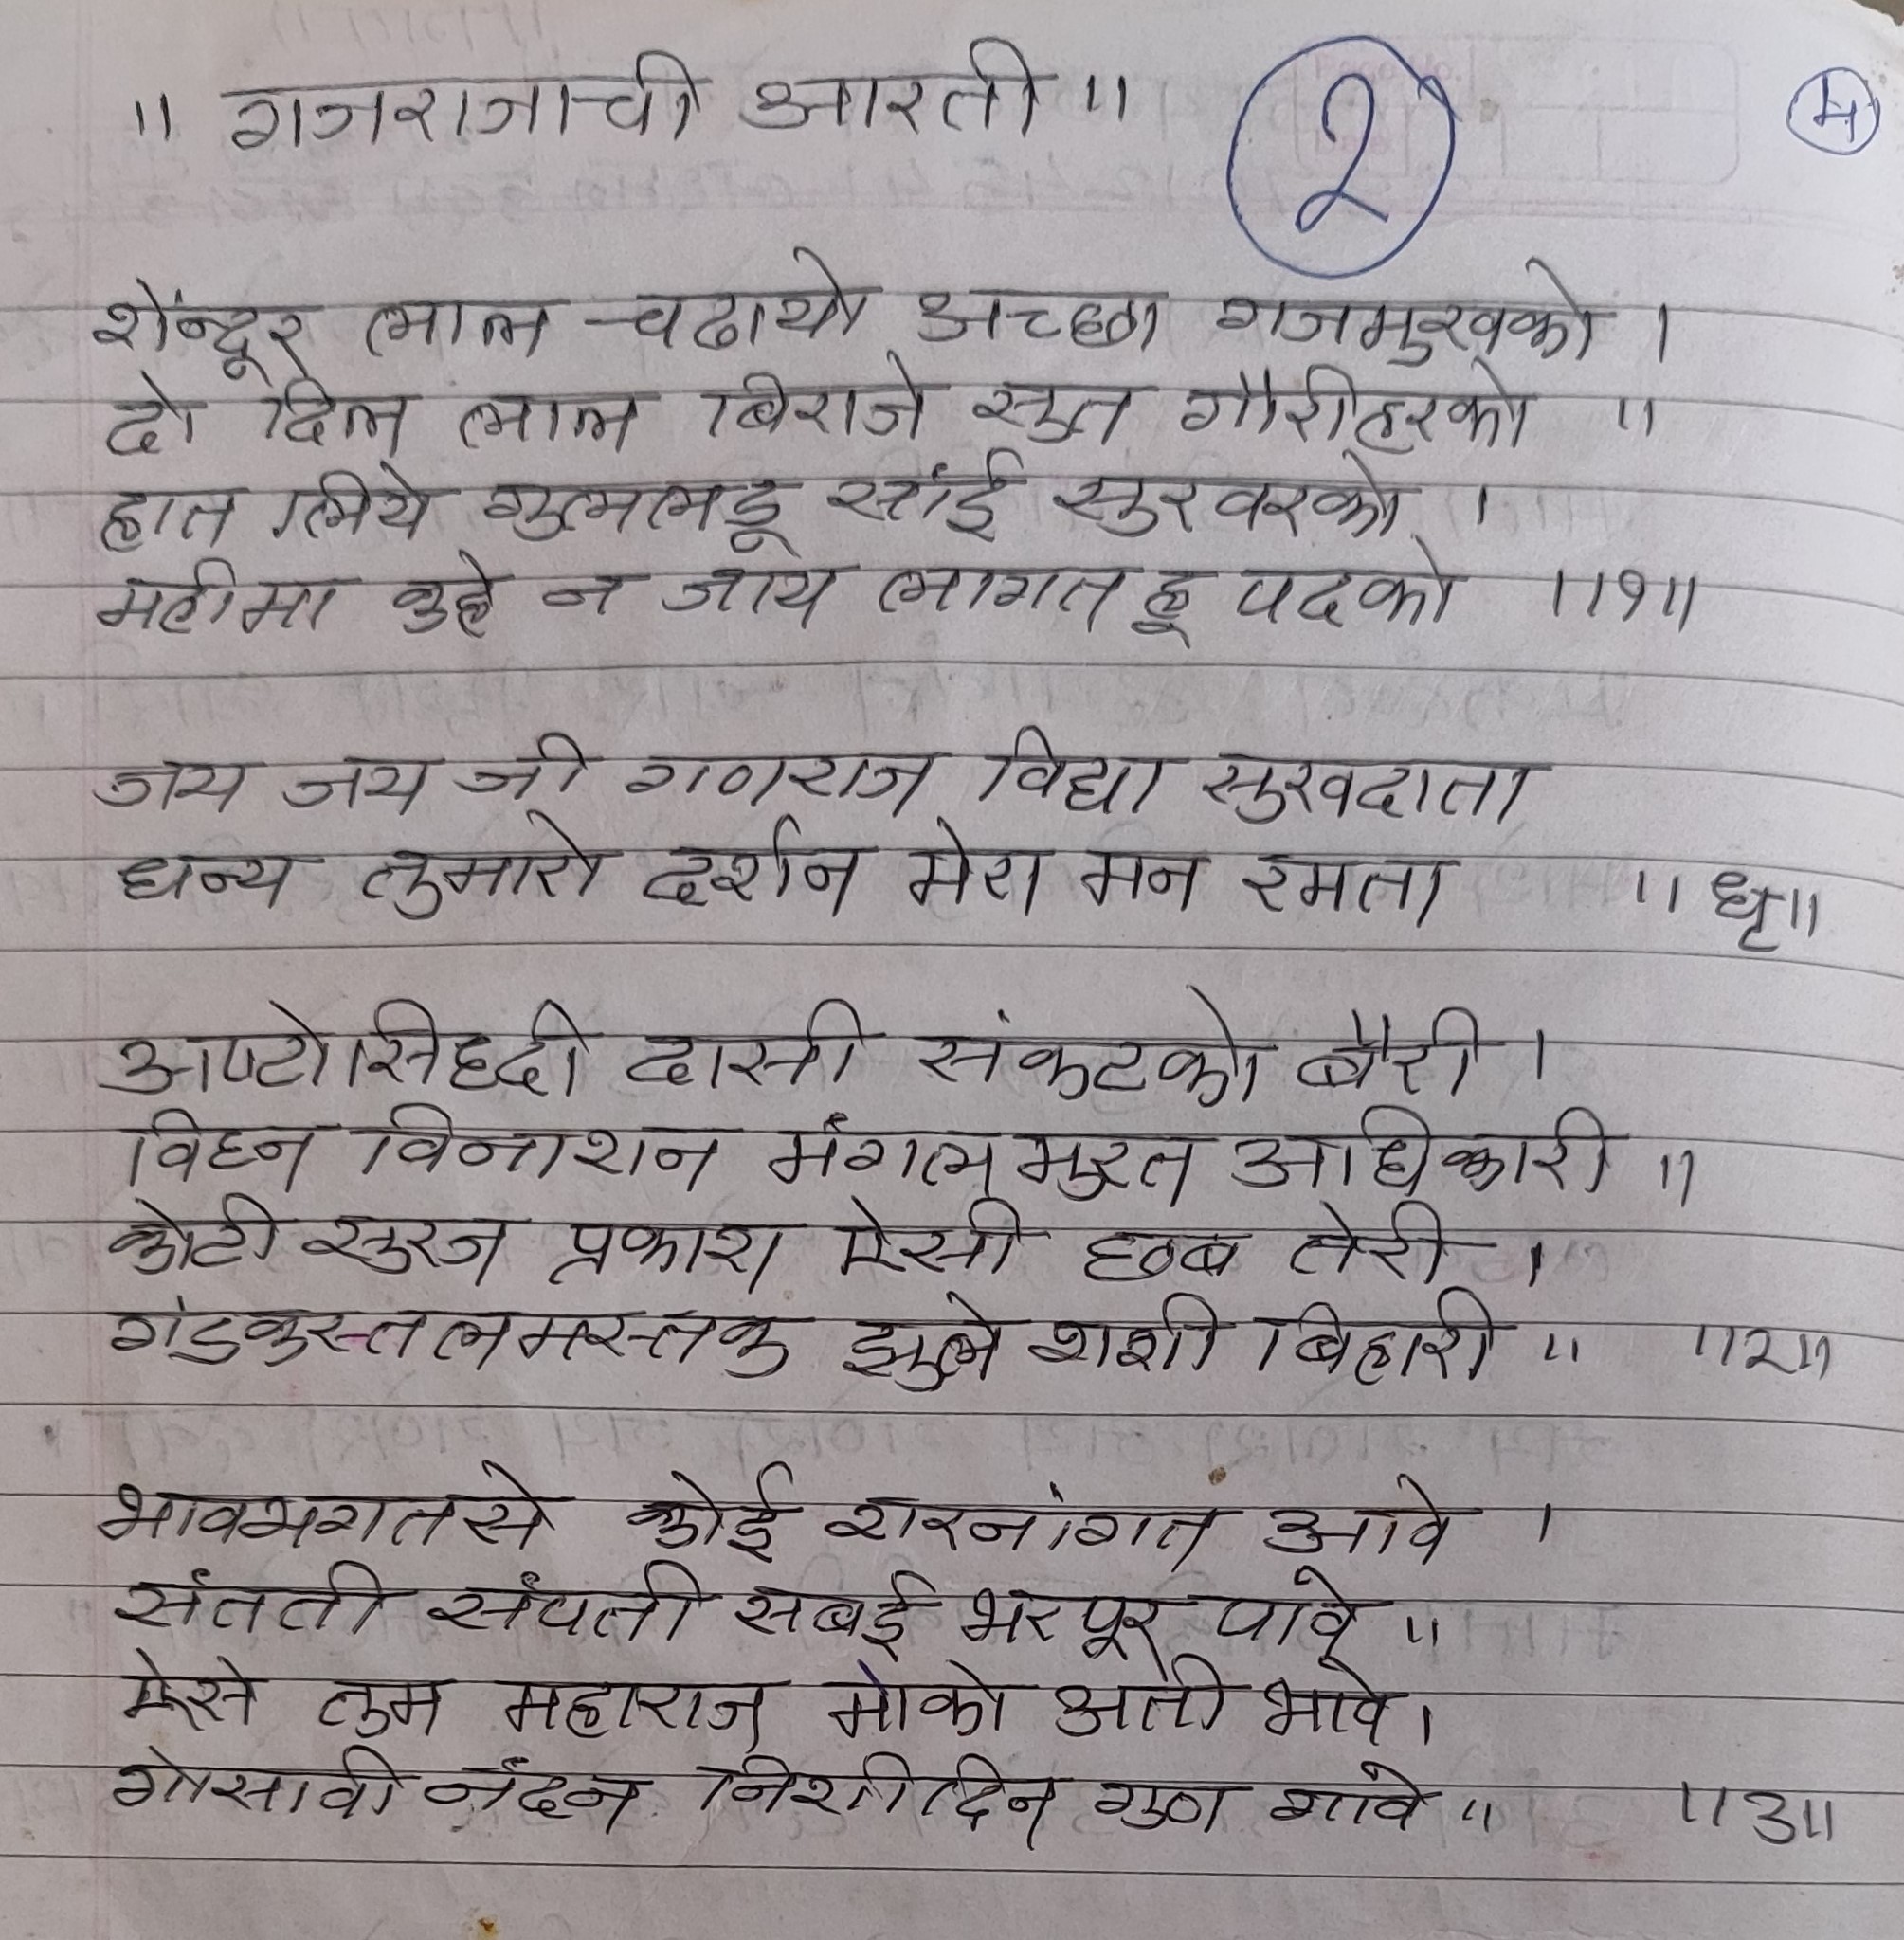 ॥ गजराजाची आरती ॥ २ ५
शेंन्दूर लाल चढायो अच्छा गजमुखको ।
दो दिल लाल बिराजे सुत गौरीहरको ॥
हात लिये गुललडू सांई सुरवरको ।
महीमा कहे न जाय लागत हू पदको ॥१॥
जय जय जी गणराज विद्या सुखदाता
धन्य तुमारो दर्शन मेरा मन रमता ॥ धृ॥
अष्टोसिद्दी दासी संकटको बैरी ।
विघ्न विनाशन मंगल मुरत अधिकारी ॥
कोटी सुरज प्रकाश ऐसी छब तेरी ।
गंडकुस्तलमस्तक झुले शशी बिहारी ॥ ॥२॥
भावभगतसे कोई शरनांगत आवे ।
संतती संपती सबई भरपूर पावे ॥
ऐसे तुम महाराज मोको अती भावे ।
गोसावी नंदन निशीदिन गुण गावे ॥ ॥३॥